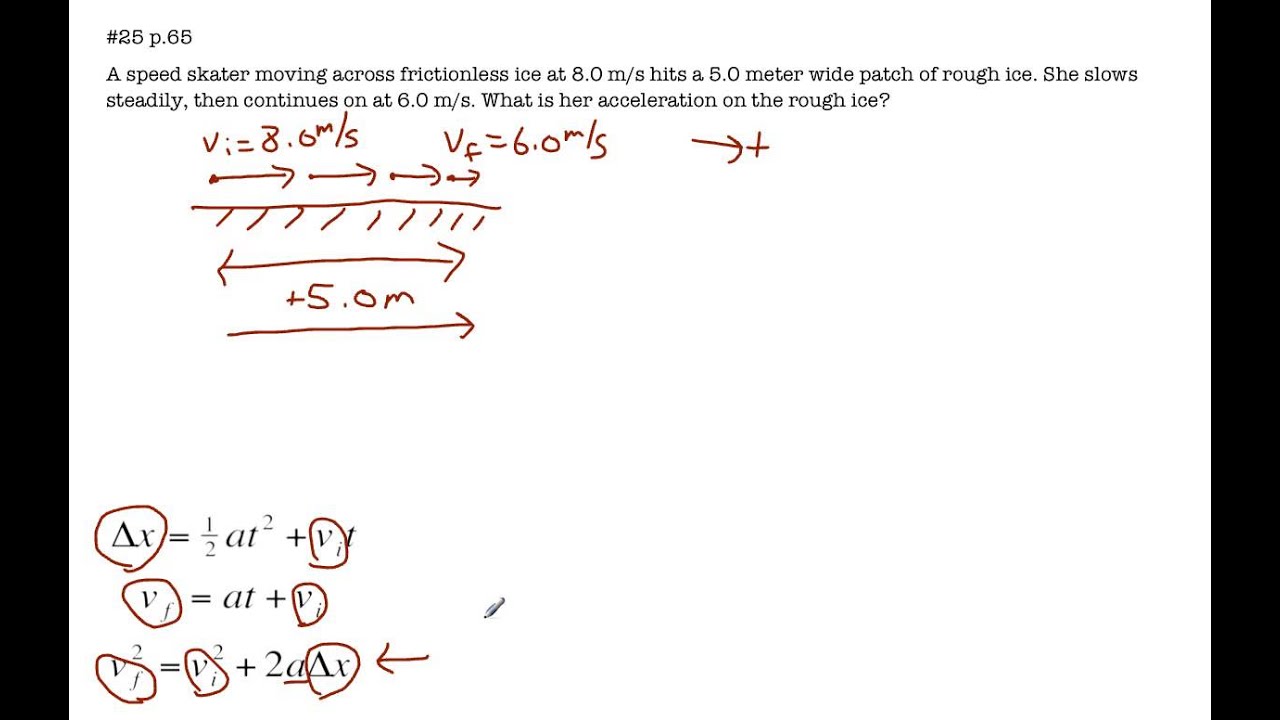 #25 p.65
A speed skater moving across frictionless ice at 8.0 m/s hits a 5.0 meter wide patch of rough ice. She slows
steadily, then continues on at 6.0 m/s. What is her acceleration on the rough ice?
vi=8.0m/s vf=6.0m/s →+
+5.0m
Δx = ½ at² + vᵢt
v_f = at + vᵢ
v_f² = vᵢ² + 2aΔx ←